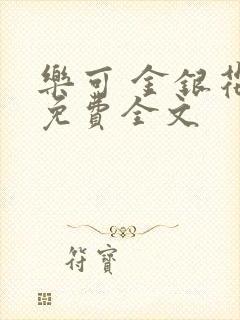 樂可 金銀花
免費全文
符寶